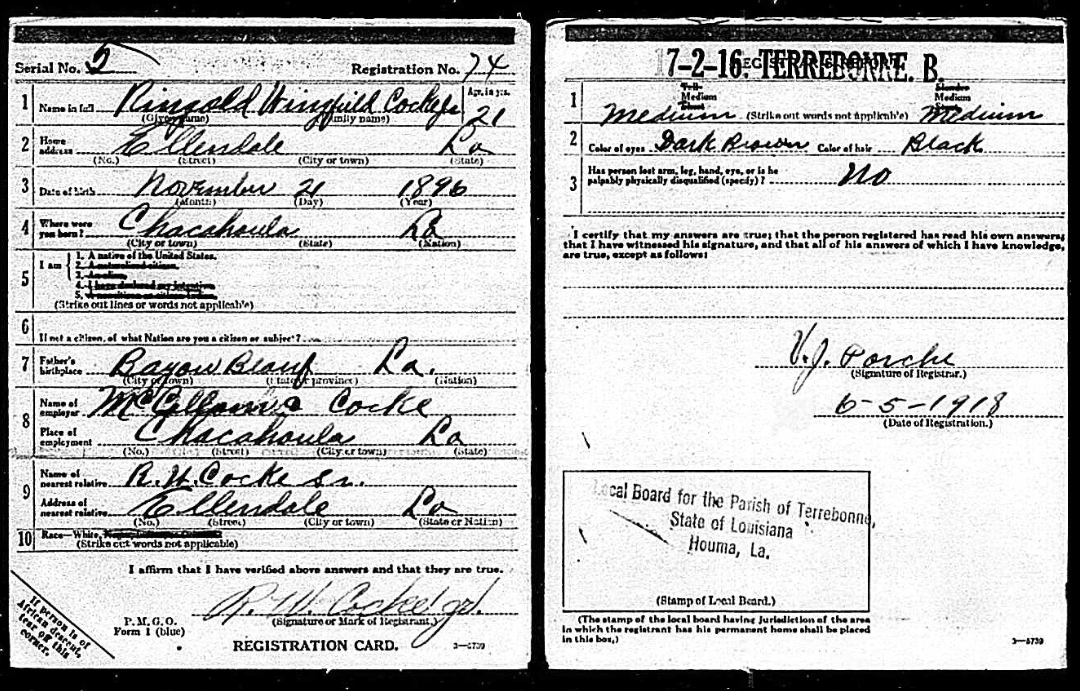 Serial No. 5 Registration No. 74
1 Name in full Ringold Wingfield Cocke jr Age, in yrs. 21
(Given name) (Family name)
2 Home address Ellendale La
(No.) (Street) (City or town) (State)
3 Date of birth November 21 1896
(Month) (Day) (Year)
4 Where were you born? Chacahoula La
(City or town) (State) (Nation)
5 I am
1. A native of the United States.
2. A naturalized citizen.
3. An alien.
4. I have declared my intention.
5.
(Strike out lines or words not applicable)
6 If not a citizen, of what Nation are you a citizen or subject?
7 Father's birthplace Bayou Beauf La.
(City or town) (State or province) (Nation)
8 Name of employer Cocke
Place of employment Chacahoula La
(No.) (Street) (City or town) (State)
9 Name of nearest relative R. W. Cocke Sr.
Address of nearest relative Ellendale La
(No.) (Street) (City or town) (State or Nation)
10 Race—White,
(Strike out words not applicable)
I affirm that I have verified above answers and that they are true.
R. W. Cocke jr.
(Signature or Mark of Registrant.)
P. M. G. O.
Form 1 (blue)
REGISTRATION CARD. 3—5739
If person is of
African descent,
tear off this
corner.
17-2-16. TERREBONNE. B.
1 Medium Medium
Medium (Strike out words not applicable) Medium
2 Color of eyes Dark Brown Color of hair Black
3 Has person lost arm, leg, hand, eye, or is he
palpably physically disqualified (specify)? No
I certify that my answers are true; that the person registered has read his own answers;
that I have witnessed his signature, and that all of his answers of which I have knowledge,
are true, except as follows:
V. J. Porche
(Signature of Registrar.)
6-5-1918
(Date of Registration.)
Local Board for the Parish of Terrebonne,
State of Louisiana
Houma, La.
(Stamp of Local Board.)
(The stamp of the local board having jurisdiction of the area
in which the registrant has his permanent home shall be placed
in this box.)
3—5739